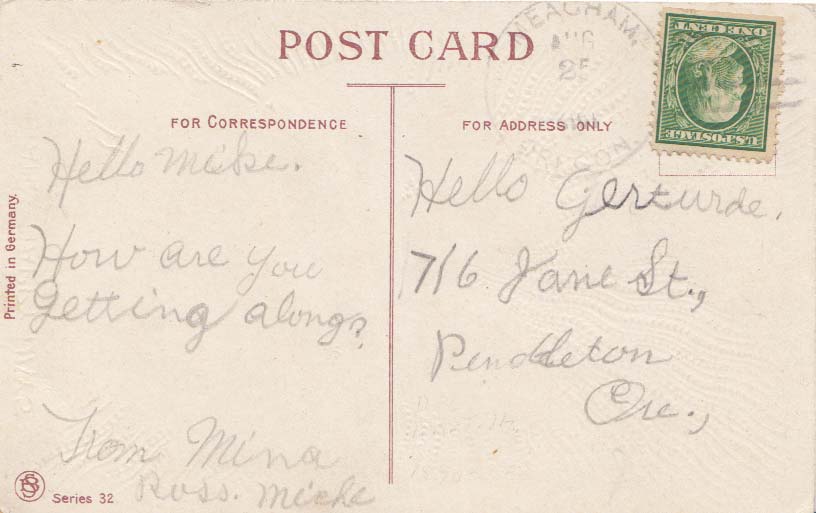 POST CARD
MEACHAM,
AUG
25
OREGON
ONE CENT
U.S. POSTAGE
FOR CORRESPONDENCE
FOR ADDRESS ONLY
Hello Mike.
How are you
getting along?
From Mina
Ross. Miche
Hello Gerturde.
716 Jane St.,
Pendleton
Ore.,
Printed in Germany.
Series 32